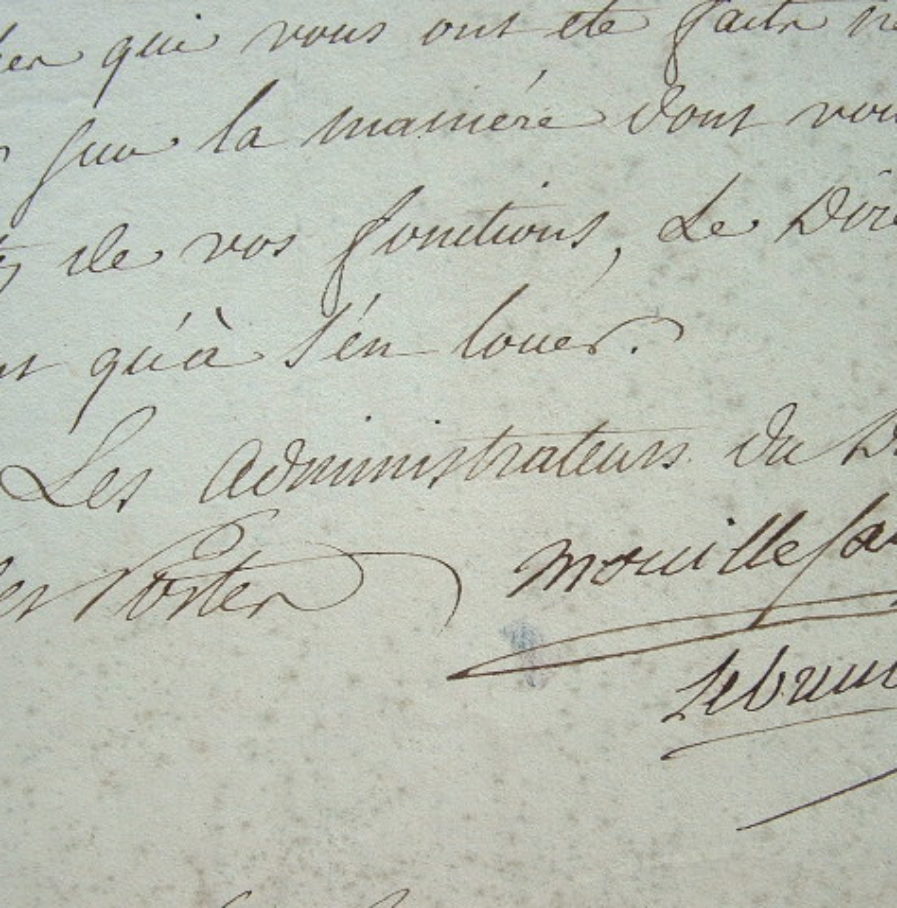 qui vous ont été faites
sur la maniére dont vou
de vos fonctions, Le Dire
qu'à s'en louer.
Les Administrateurs du D
es Postes
mouillesa
Lebrun